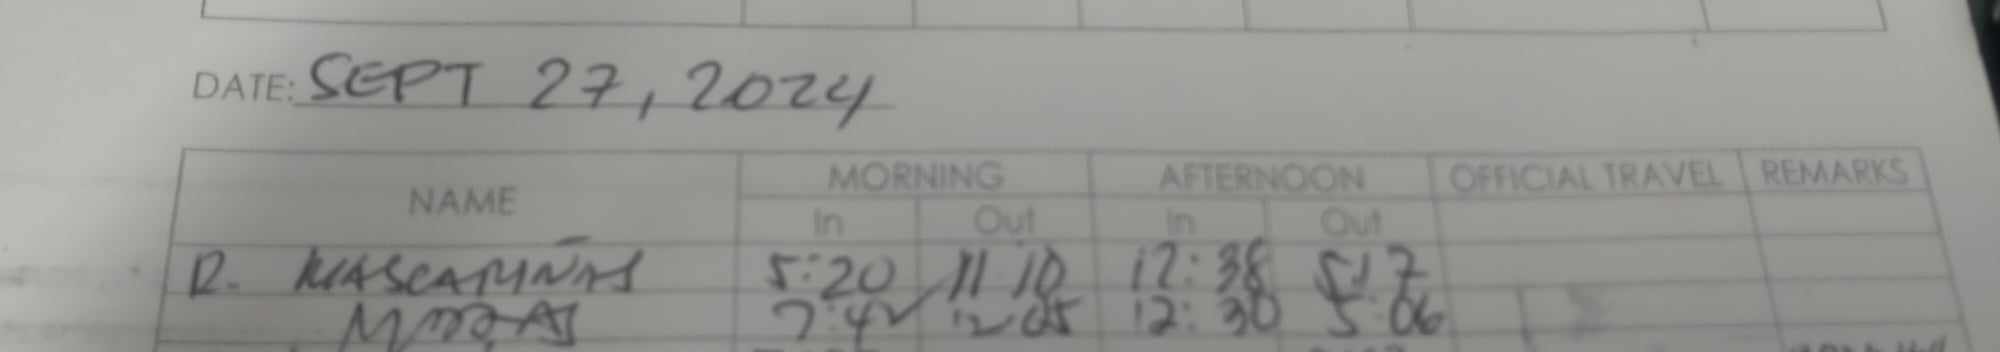 DATE: SEPT 27, 2024
NAME MORNING AFTERNOON OFFICIAL TRAVEL REMARKS
In Out In Out
R. MASCARIÑAS 5:20 11 10 12:38 5:17
12 05 12:30 5:06